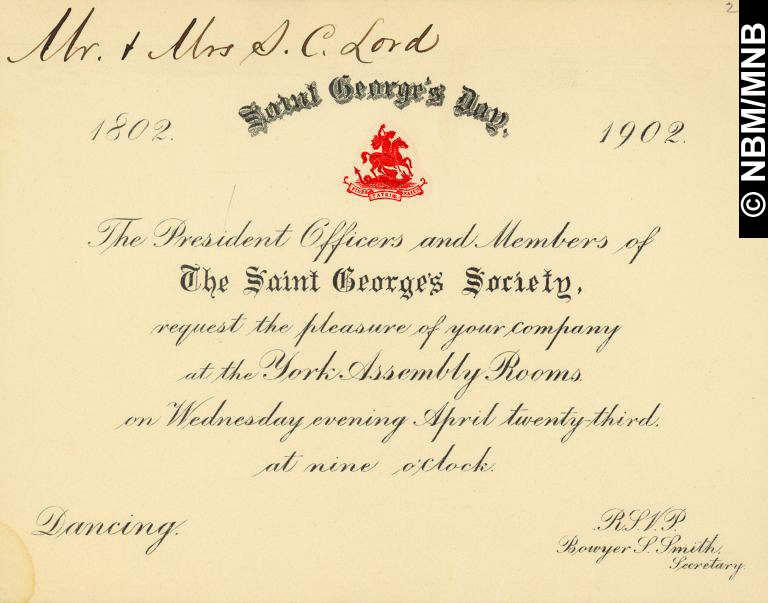 2
Mr. & Mrs S. C. Lord
Saint George's Day.
1802. 1902.
The President Officers and Members of
The Saint George's Society,
request the pleasure of your company
at the York Assembly Rooms
on Wednesday evening April twenty-third.
at nine o'clock.
Dancing.
R.S.V.P.
Bowyer S. Smith,
Secretary.
© NBM/MNB